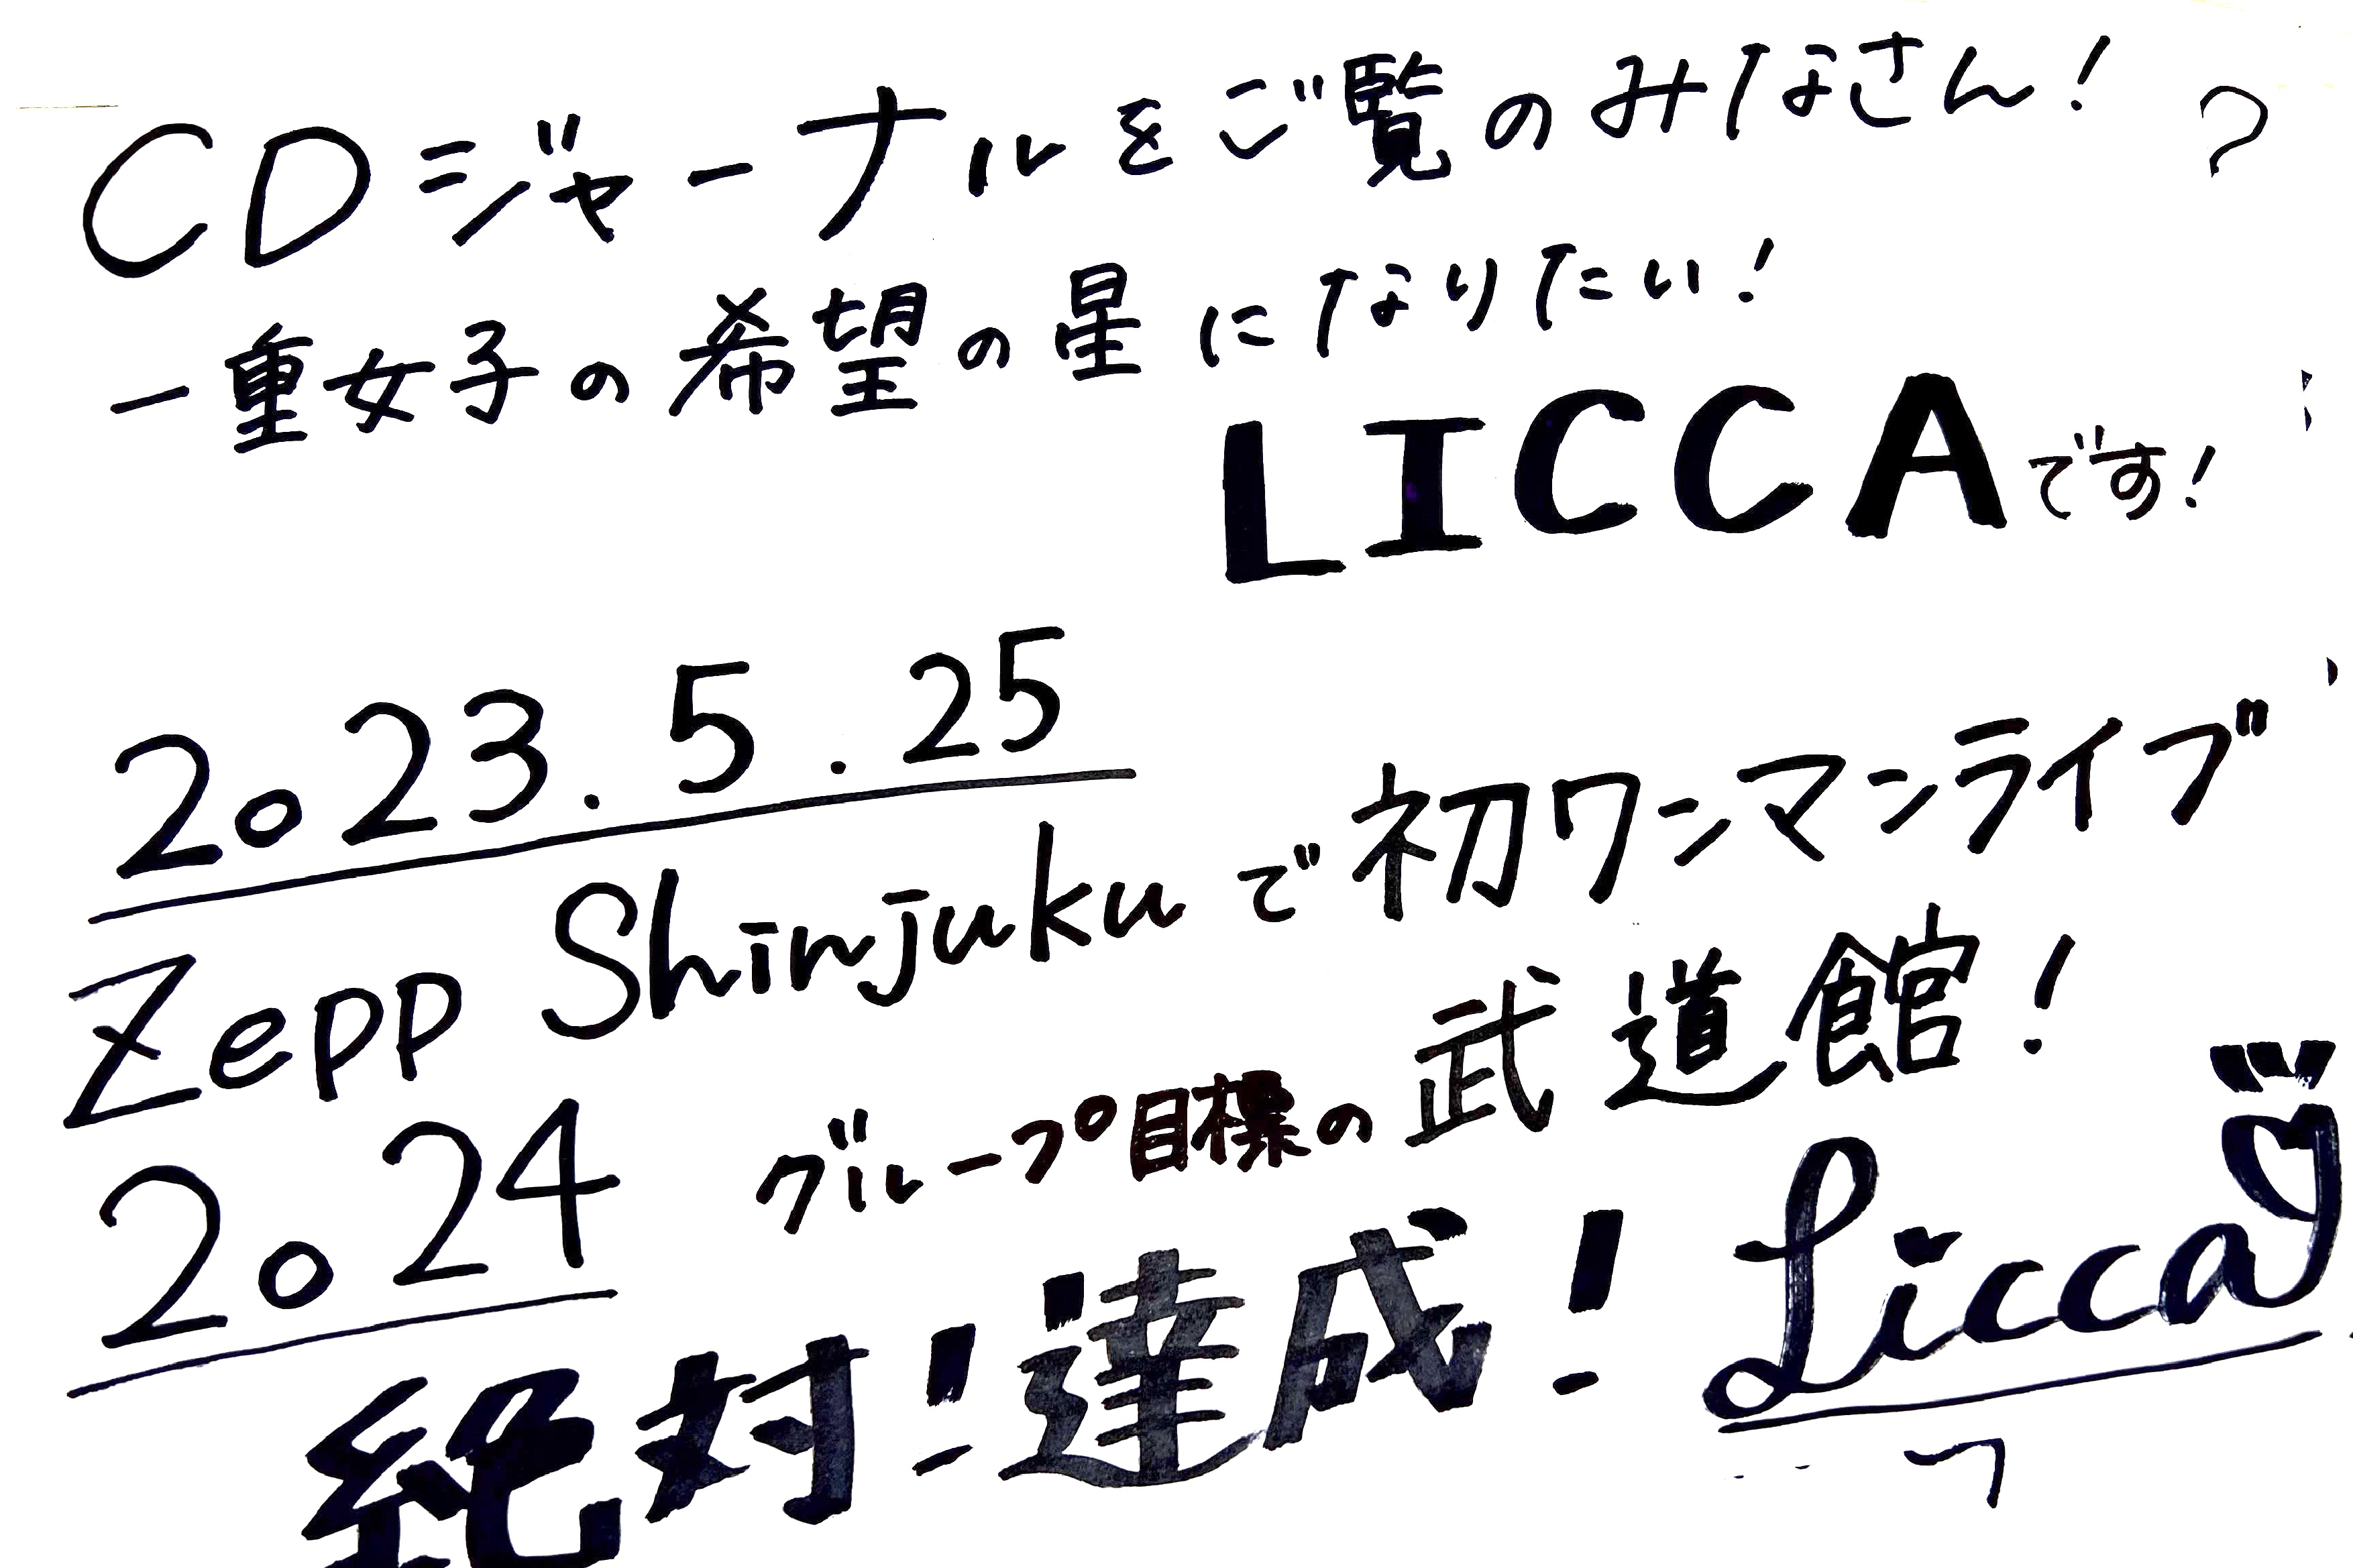 CDジャーナルをご覧のみなさん!
一重女子の希望の星になりたい!
LICCAです!
2023.5.25
Zepp Shinjukuで初ワンマンライブ
2024 グループ目標の武道館!
絶対!達成!
Licca